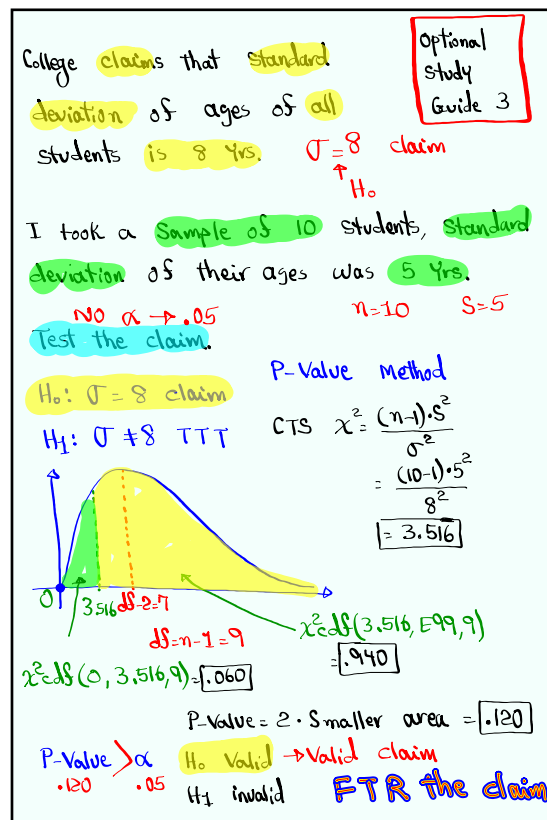 Optional
Study
Guide 3
College claims that standard
deviation of ages of all
students is 8 Yrs.
σ = 8 claim
H₀
I took a Sample of 10 students, standard
deviation of their ages was 5 Yrs.
NO α → .05
n=10 S=5
Test the claim.
P-Value Method
H₀: σ = 8 claim
H₁: σ ≠ 8 TTT
CTS χ² = (n-1)·S² / σ²
= (10-1)·5² / 8²
= 3.516
0 3.516 df-2=7
df=n-1=9
χ²cdf(3.516, E99, 9)
= .940
χ²cdf(0, 3.516, 9) = .060
P-Value = 2 · Smaller area = .120
P-Value > α
.120 .05
H₀ Valid → Valid claim
H₁ invalid
FTR the claim